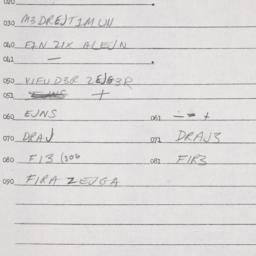 020
030 M3DREJTIMUN
040 FZN ZIX ALEJN
041 —
050 VIEUD3R ZEJG3R
051 +
060 EJNS 061 — +
070 DRAJ 071 DRAJ3
080 FI3 (306 081 FIR3
090 FIRA ZEJGA